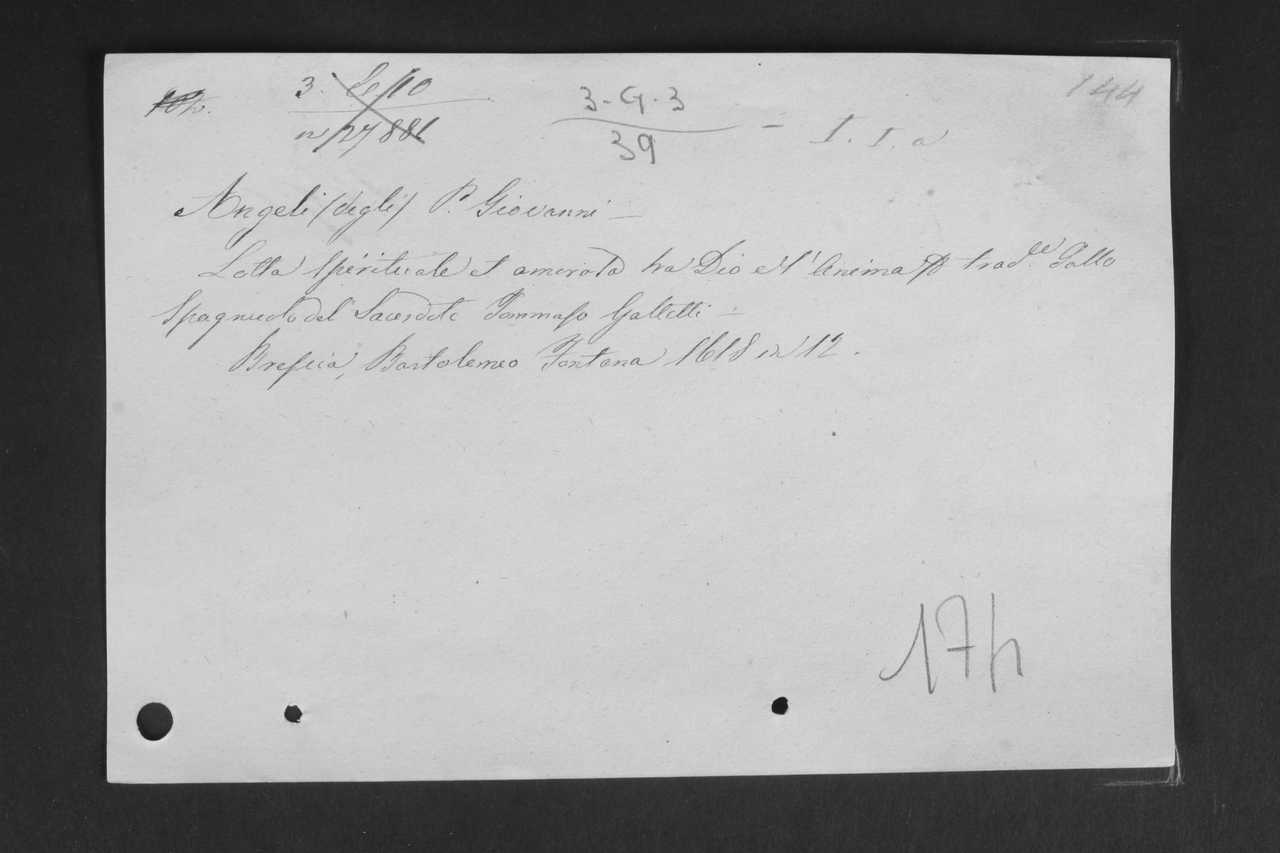 3. 144
3-G-3
39 - I. I. a
Angeli (degli) P. Giovanni -
Lotta spirituale et amorosa tra Dio e l'Anima trad.e dallo
Spagnuolo dal Sacerdote Tommaso Galletti -
Brescia, Bartolomeo Fontana 1618 in 12.
17h